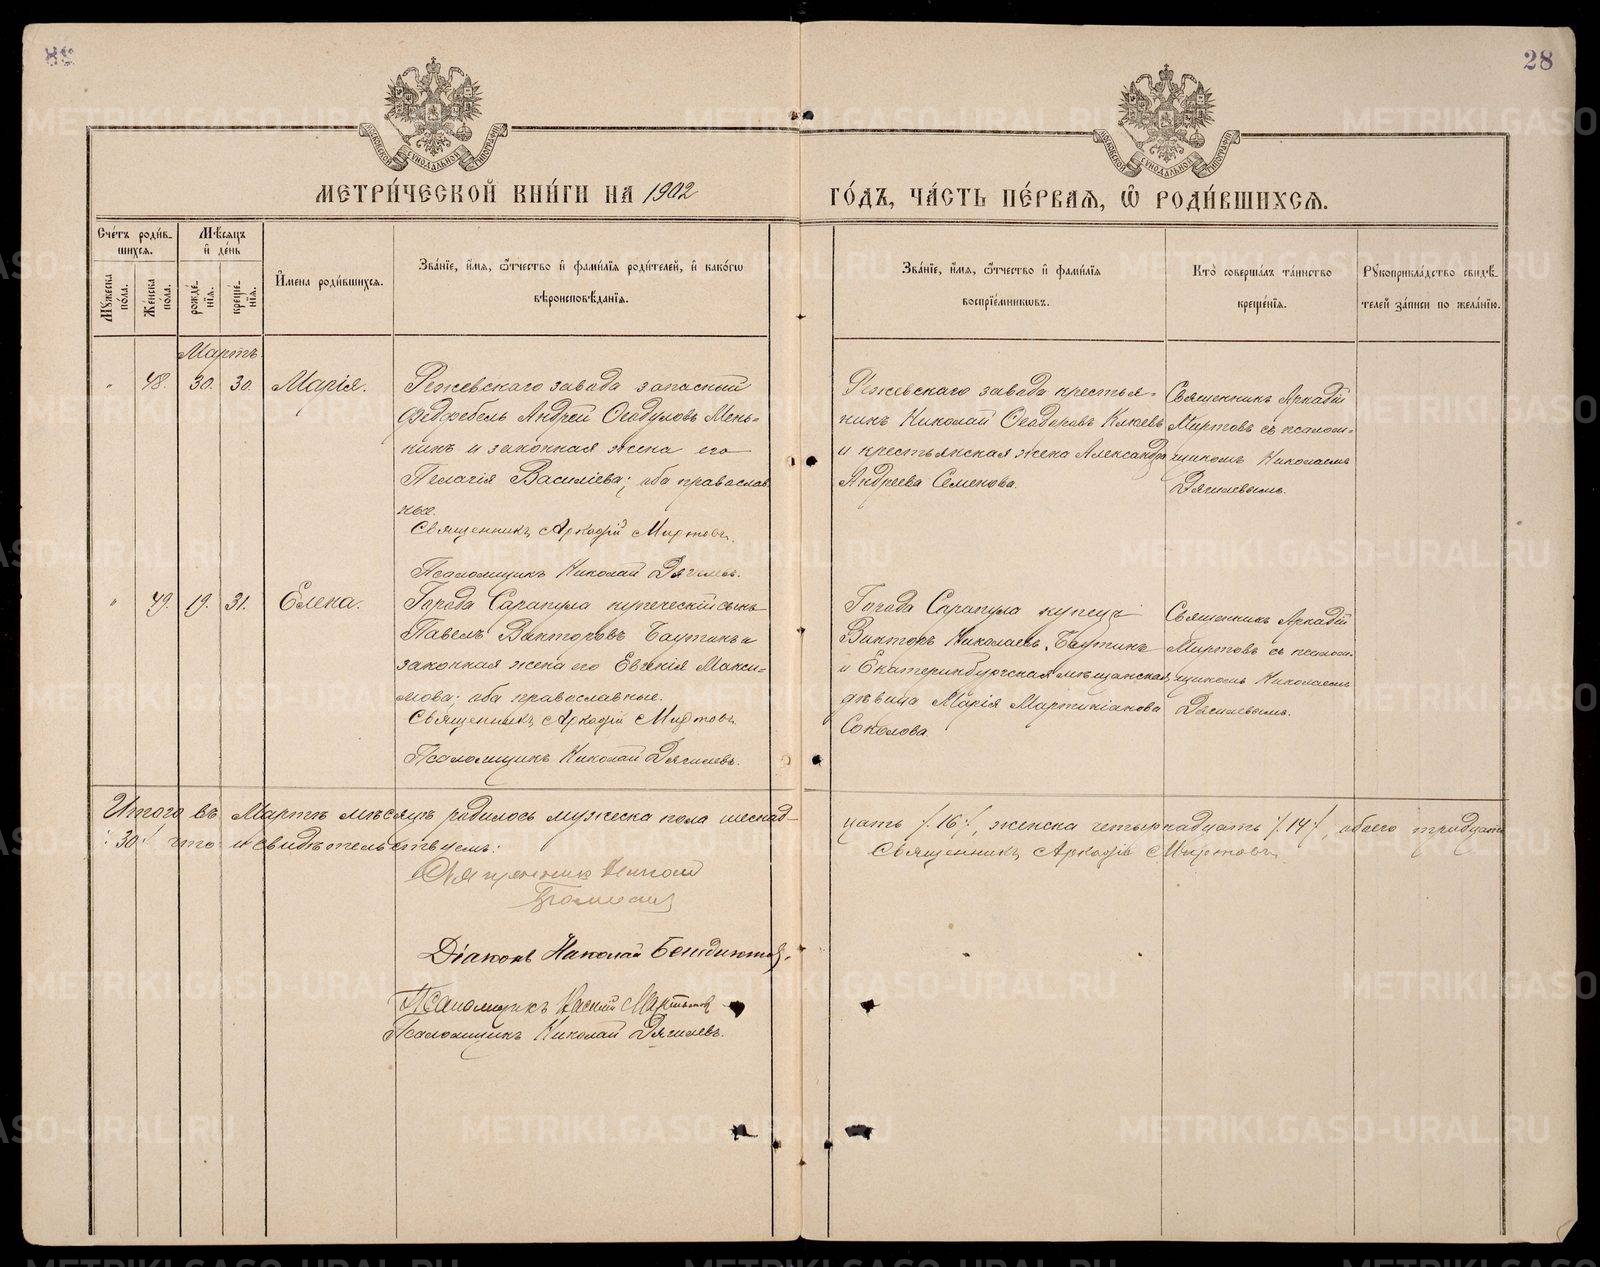 28
МЕТРИ́ЧЕСКОЙ КНИ́ГИ НА 1902
ГО́ДЪ, ЧА́СТЬ ПЕ́РВАѦ, Ѡ҆ РОДИ́ВШИХСѦ.
Сче́тъ роди́в-
шихсѧ.
Мꙋжеска по́ла.
Же́нска по́ла.
Мѣ́сѧцъ
и҆ де́нь
рожде́-
нїѧ.
креще́-
нїѧ.
И҆мена роди́вшихсѧ.
Зва́нїе, и҆́мѧ, ѻ҆́тчество и҆ фами́лїѧ роди́телей, и҆ како́гѡ
вѣроисповѣ́данїѧ.
Зва́нїе, и҆́мѧ, ѻ҆́тчество и҆ фами́лїѧ
воспрїе́мникѡвъ.
Кто̀ соверша́лъ та́инство
креще́нїѧ.
Рꙋкоприкла́дство свидѣ́-
телей за́писи по жела́нїю.
Мартъ.
"
48.
30.
30.
Марія.
Режевскаго завода запасный
фельдфебель Андрей Ѳеодуловъ Мень-
кинъ и законная жена его
Пелагія Василіева; оба православ
ные.
Священникъ Аркадій Миртовъ.
Псаломщикъ Николай Дягилевъ.
Режевскаго завода крестья-
нинъ Николай Ѳеодоровъ Клюевъ
и крестьянская жена Александра
Андреева Семенова.
Священникъ Аркадій
Миртовъ съ псалом-
щикомъ Николаемъ
Дягилевымъ.
"
49.
19.
31.
Елена.
Города Сарапула купеческій сынъ
Павелъ Викторовъ и
законная жена его Евгенія Макси-
мова; оба православные.
Священникъ Аркадій Миртовъ.
Псаломщикъ Николай Дягилевъ.
Города Сарапула купецъ
Викторъ Николаевъ
и Екатеринбургская мѣщанская
дѣвица Марія Мартиніанова
Соколова.
Священникъ Аркадій
Миртовъ съ псалом-
щикомъ Николаемъ
Дягилевымъ.
Итого въ Мартѣ мѣсяцѣ родилось мужеска пола шеснад-
цать /.16./, женска четырнадцать /.14./, обоего тридцать
/.30./ что и свидѣтельствуемъ:
Священникъ Аркадій Миртовъ.
Священникъ
Діаконъ Николай Бенедиктовъ.
Псаломщикъ
Псаломщикъ Николай Дягилевъ.
METRIKI.GASO-URAL.RU